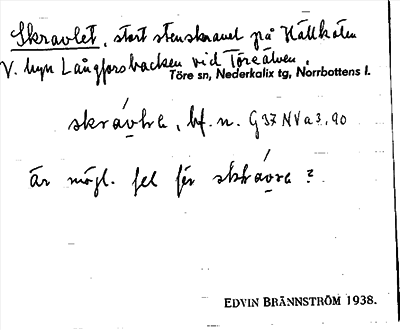 Skravlet, stort stenskravel på Hällholm
V. hyn Långforsbacken vid Töreälven.
Töre sn, Nederkalix tg, Norrbottens l.
skrávla, bf. n. G 37 N V a 3, 90
är möjl. fel för skrávra?
EDVIN BRÄNNSTRÖM 1938.